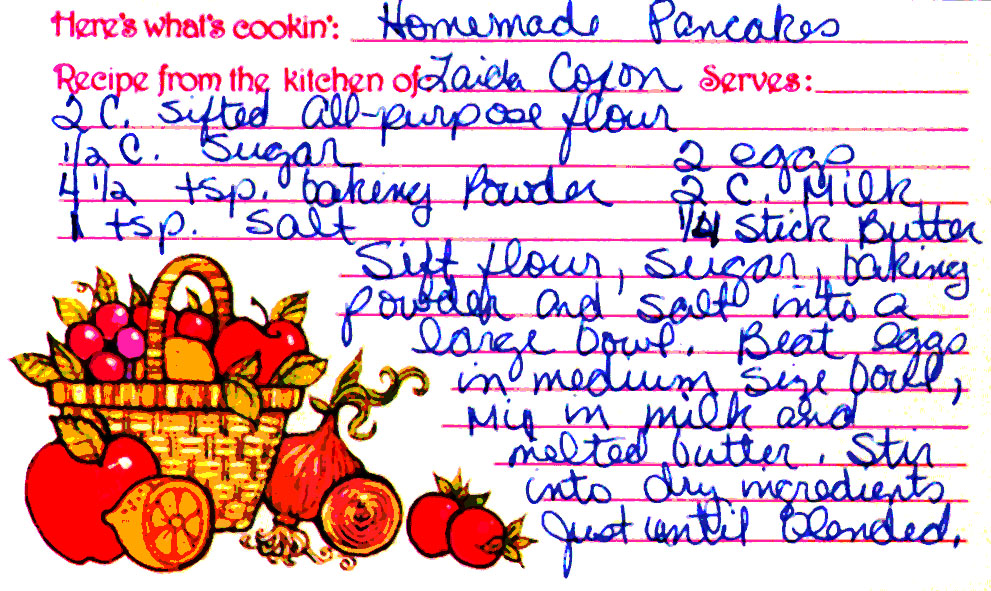 Here's what's cookin': Homemade Pancakes
Recipe from the kitchen of: Zaida Colon Serves:
2 C. Sifted All-purpose flour
1/2 C. Sugar 2 eggs
4 1/2 tsp. baking Powder 2 C. Milk
1 tsp. Salt 1/4 Stick Butter
Sift flour, sugar, baking
powder and salt into a
large bowl. Beat eggs
in medium size bowl,
Mix in milk and
melted butter. Stir
into dry ingredients
just until blended.